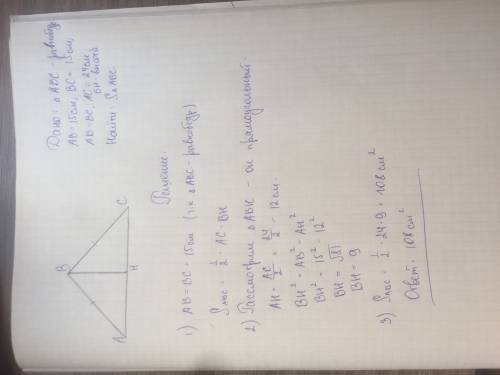 Дано: △ABC - равнобедр.
AB = 15 см, BC = 15 см,
AB = BC; AC = 24 см
BH - высота
Найти: S△ABC.
B
A
H
C
Решение:
1) AB = BC = 15 см (т.к △ABC - равнобедр)
SABC = 1/2 · AC · BH
2) Рассмотрим △ABH - он прямоугольный
AH = AC/2 = 24/2 = 12 см.
BH² = AB² - AH²
BH² = 15² - 12²
BH = √81
BH = 9
3) SABC = 1/2 · 24 · 9 = 108 см²
Ответ: 108 см²